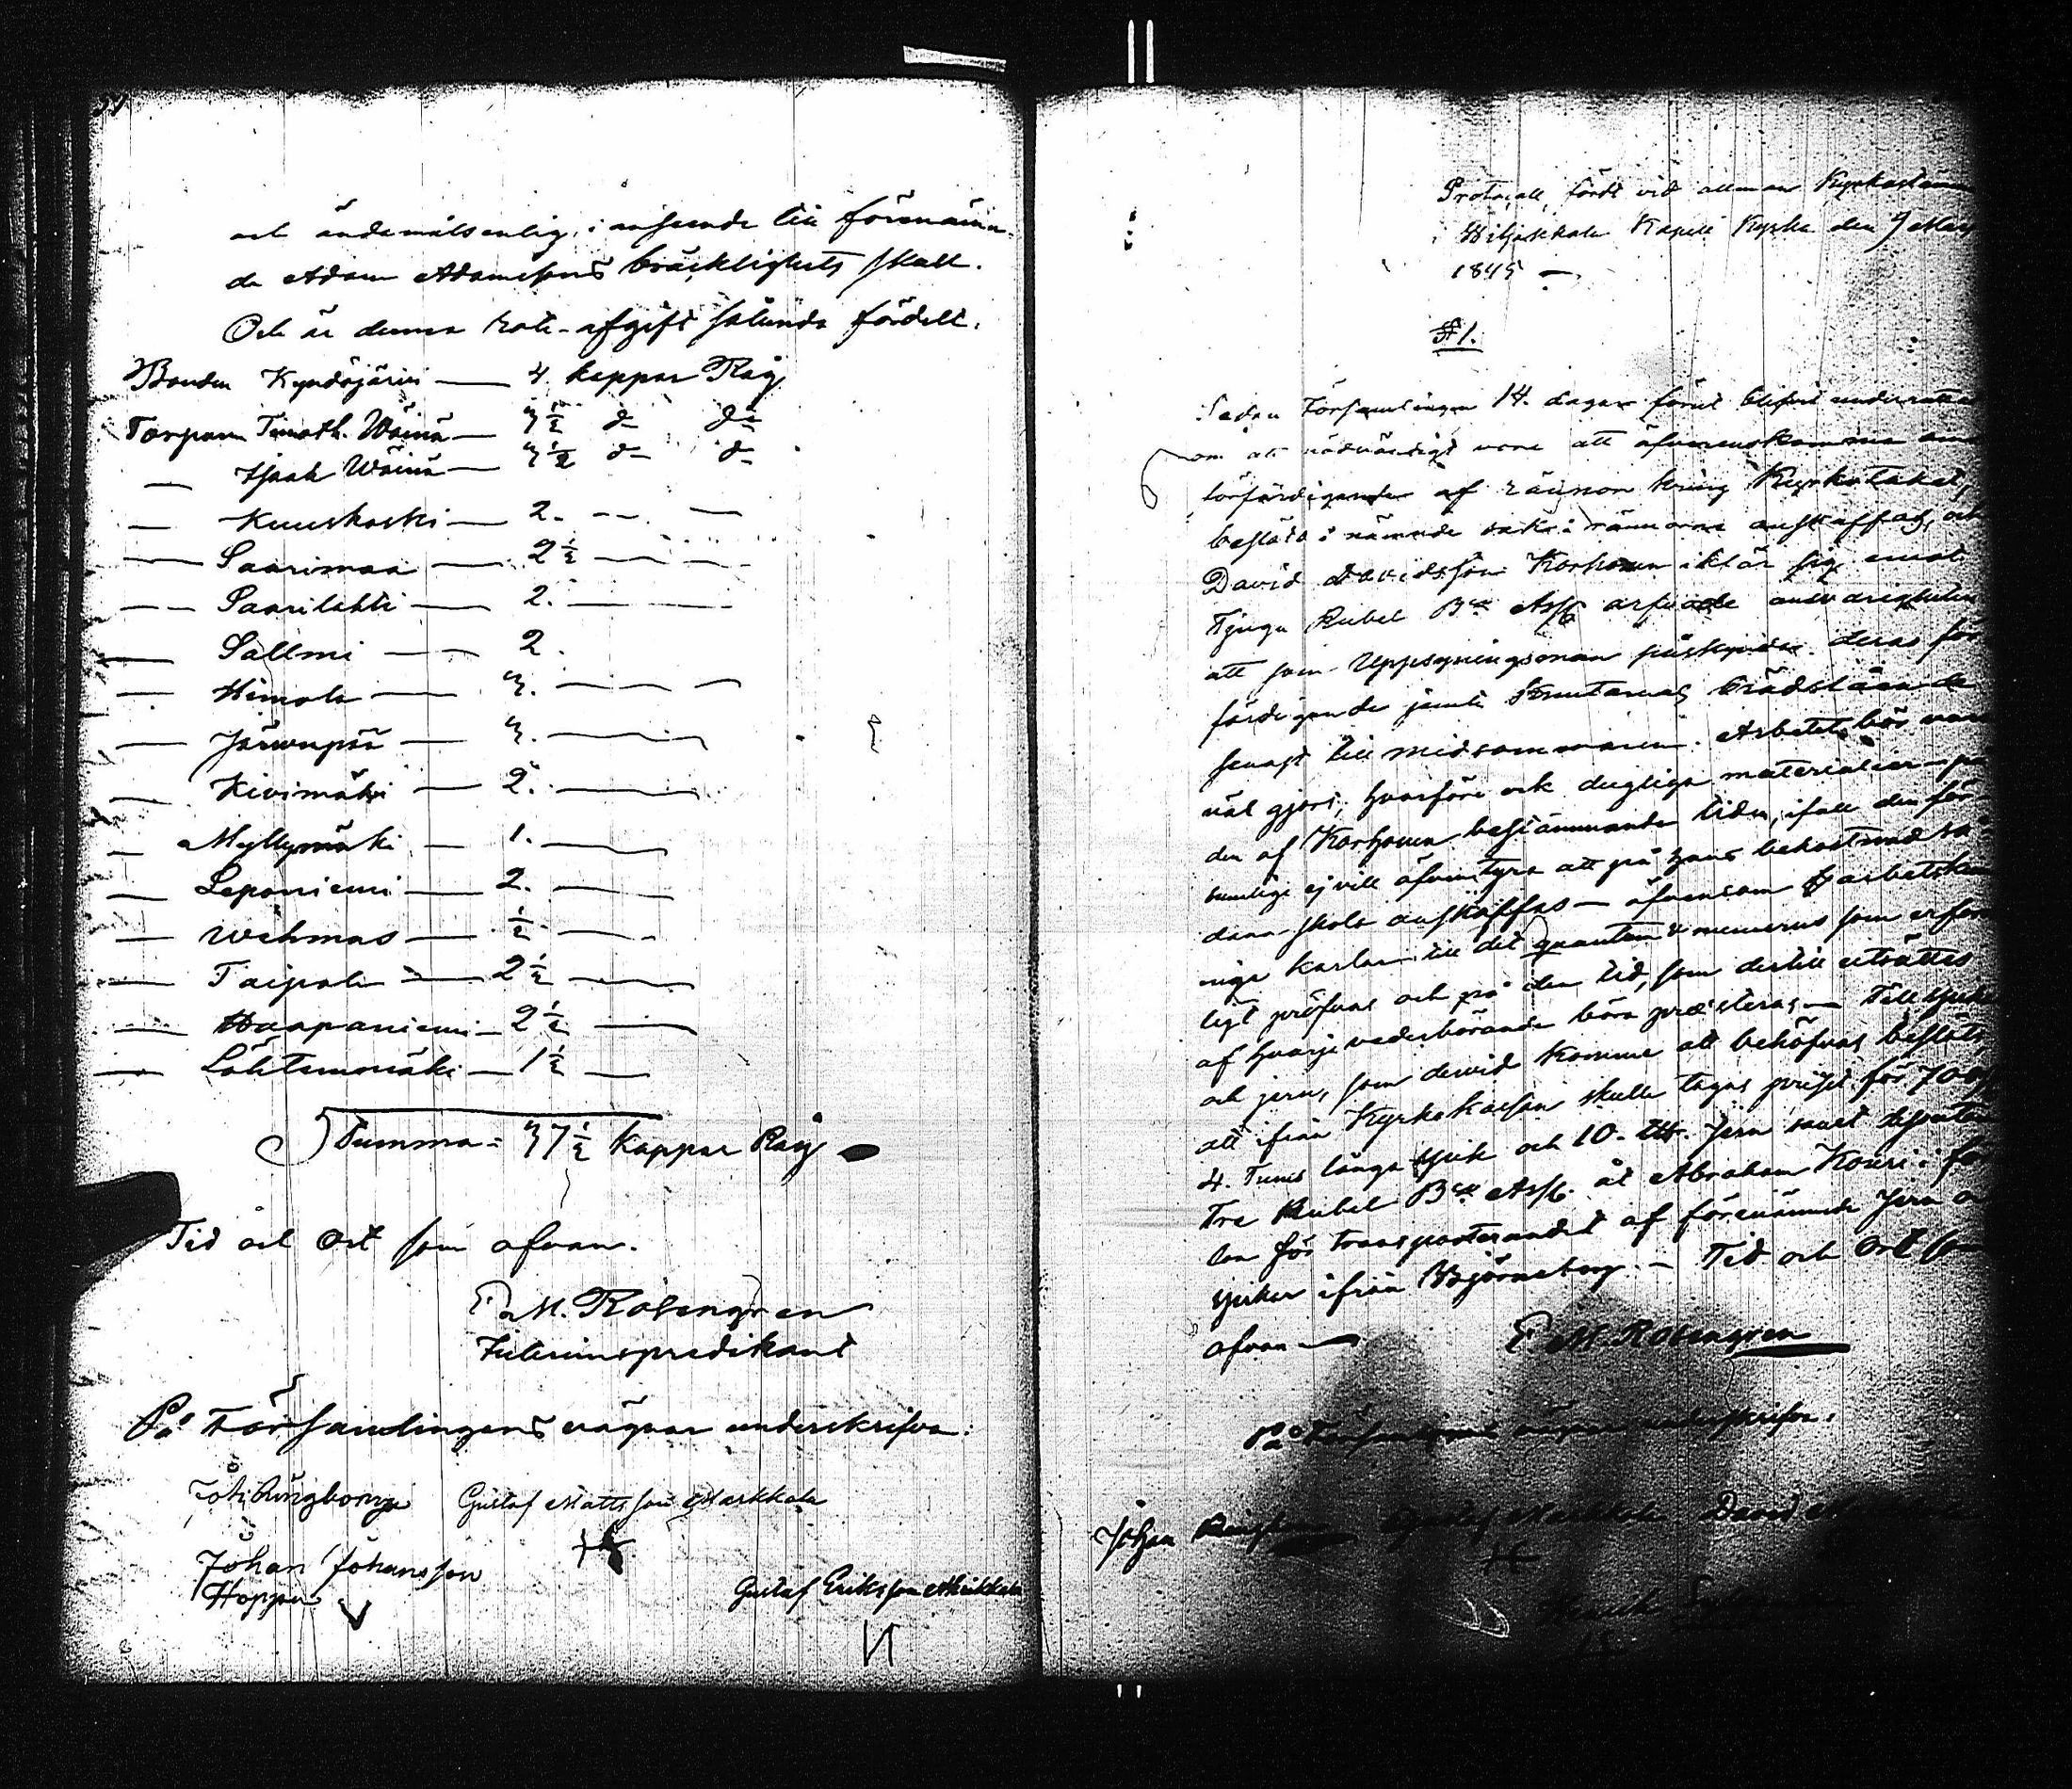 och ändamålsenlig, i anseende till förenämn-
de Adam Adamssons bräcklighets skull.
Och är denna rote-afgift sålunda fördelt.
Bonden Kyndöjärvi — 4. kappar Råg
Torparn Timoth. Wäinä — 3 1/2 do do
— Isaak Wäinä — 3 1/2 do do
— Kuuskoski — 2. — —
— Saarimaa — 2 1/2 — —
— Saarilahti — 2. —
— Sallmi — 2.
— Himola — 3. — —
— Järvenpää — 3. —
— Kivimäki — 2. —
— Myllymäki — 1. —
— Leponiemi — 2. —
— Wehmas — 1/2 —
— Taipale — 2 1/2 —
— Haapaniemi — 2 1/2 —
— Lähteenmäki — 1 1/2 —
Summa = 37 1/2 Kappar Råg
Tid och Ort som ofvan.
E. M. Rosengren
Interimspredikant
På Församlingens vägnar underskrifva:
Joh: Ringbom Gustaf Mattsson Markkola
Johan Johansson
Hoppu
Gustaf Eriksson Markkola
Protocoll, fördt vid allmän Kyrkostämma
i Wiljakkala Kapell Kyrka den 7 Maij
1845 —
§ 1.
Sedan Församlingen 14. dagar förut blifvit underrättad
om att nödvändigt vore att öfverenskomma om
förfärdigandet af rännor kring Kyrkotaket,
beslöts i nämnde sak: rännorne anskaffas, och
David Davidsson Korhonen iklär sig emot
Tjugu Rubel Bco Ass. arfvode ansvarigheten
att som Uppsyningsman påskynda deras för-
färdigande jemte Knutarnas brädslående
senast till midsommaren. Arbetet bör vara
väl gjort, hvarföre ock dugliga materialier på
den af Korhonen bestämmande tiden, ifall den för-
sumlige ej vill äfventyra att på hans bekostnad så-
dana skola anskaffas — äfvensom arbetskun-
nige karlar till det quantum & numerus som erfor
ligt pröfvas och på den tid, som dertill utsättes
af hvarje vederbörande böra præsteras — Till spikar
och jern, som dervid komme att behöfvas beslöts,
att ifrån Kyrkokassan skulle tagas priset för 700
4. Tums långa spik och 10. LU. Jern samt
Tre Rubel Bco Ass. åt Abraham Kouri i
lön för transporterandet af förenämnde Jern och
spikar ifrån Björneborg. — Tid och Ort som
ofvan —
E. M. Rosengren
På Församlingens vägnar underskrifva:
Johan Ringbom Gustaf Markkola David
Henrik